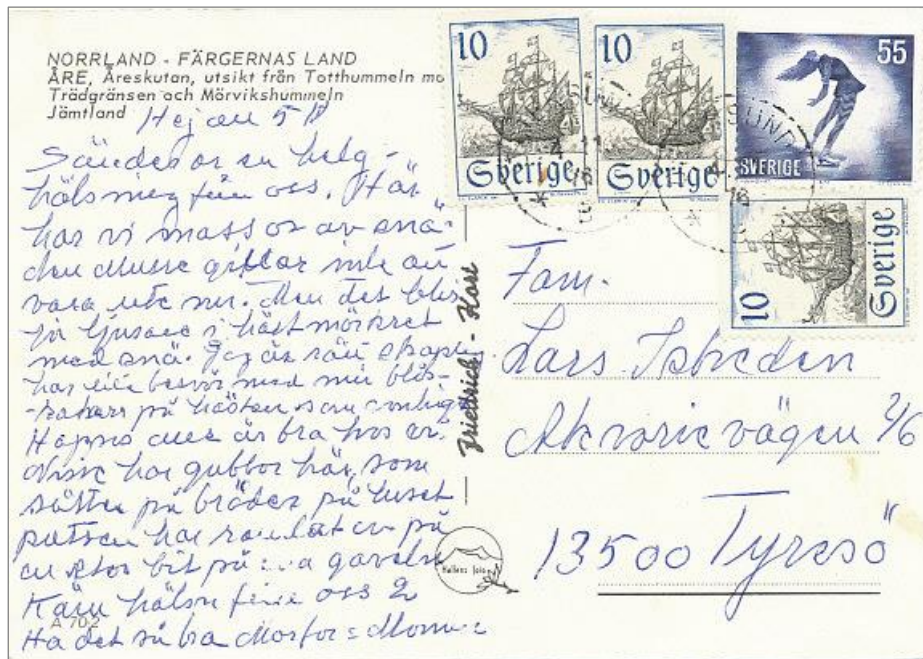 NORRLAND - FÄRGERNAS LAND
ÅRE, Åreskutan, utsikt från Totthummeln mo
Trädgränsen och Mörvikshummeln
Jämtland
Sänder er en helg-
hälsning från oss. Här
har vi massor av snö
den Musse gillar inte att
vara ute mer. Men det blir
ju ljusare i höstmörkret
med snö. Jag är rätt
har lite besvär med min
på hösten som vanligt
Hoppas allt är bra hos er.
Nisse har gubbar här, som
sätter på bräder på huset
putsen har ramlat av på
en stor bit på gaveln
hälsn från oss 2
Ha det så bra Morfar Mormor
A 702
Friedrich - Kose
Hallens foto
10
Sverige
10
Sverige
55
SVERIGE
10
Sverige
Fam.
Lars
Akvarievägen 2/6
13500 Tyresö